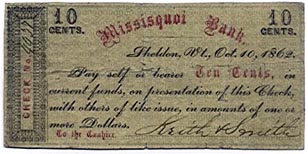 10 CENTS.
Missisquoi Bank.
10 CENTS.
Sheldon, Vt., Oct. 10, 1862.
CHECK No.
Pay self or bearer Ten Cents, in
current funds, on presentation of this Check,
with others of like issue, in amounts of one or
more Dollars.
To the Cashier.
Keith & Smith